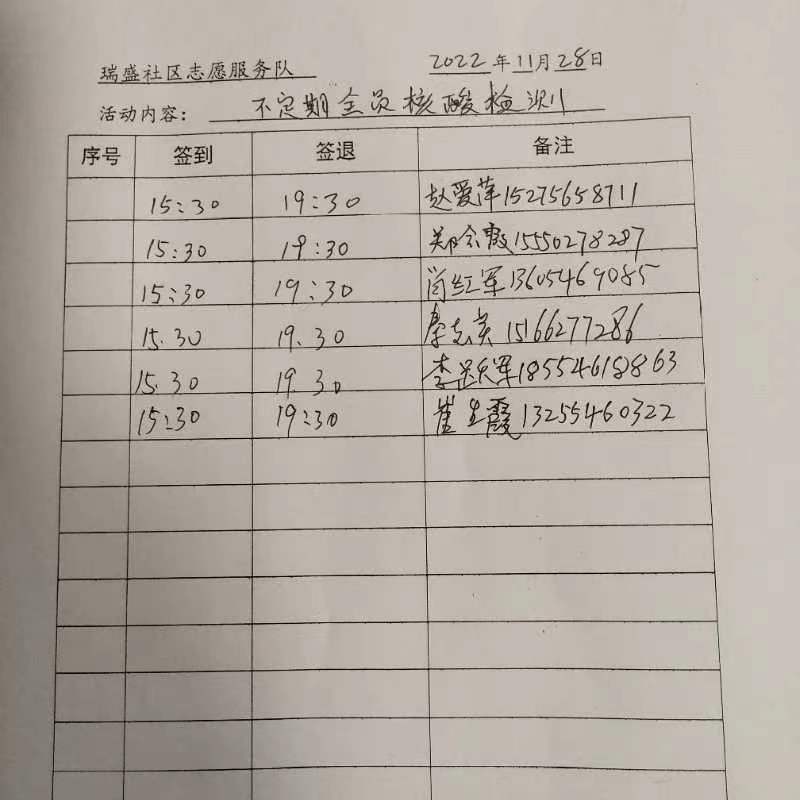 瑞盛社区志愿服务队 2022年11月28日
活动内容: 不定期全员核酸检测
序号 签到 签退 备注
15:30 19:30 赵爱萍15275658711
15:30 19:30 郑 霞15550278287
15:30 19:30 肖红军13605469085
15.30 19.30 秦志英 15166277286
15.30 19.30 李跃军18554618863
15:30 19:30 崔生霞13255460322